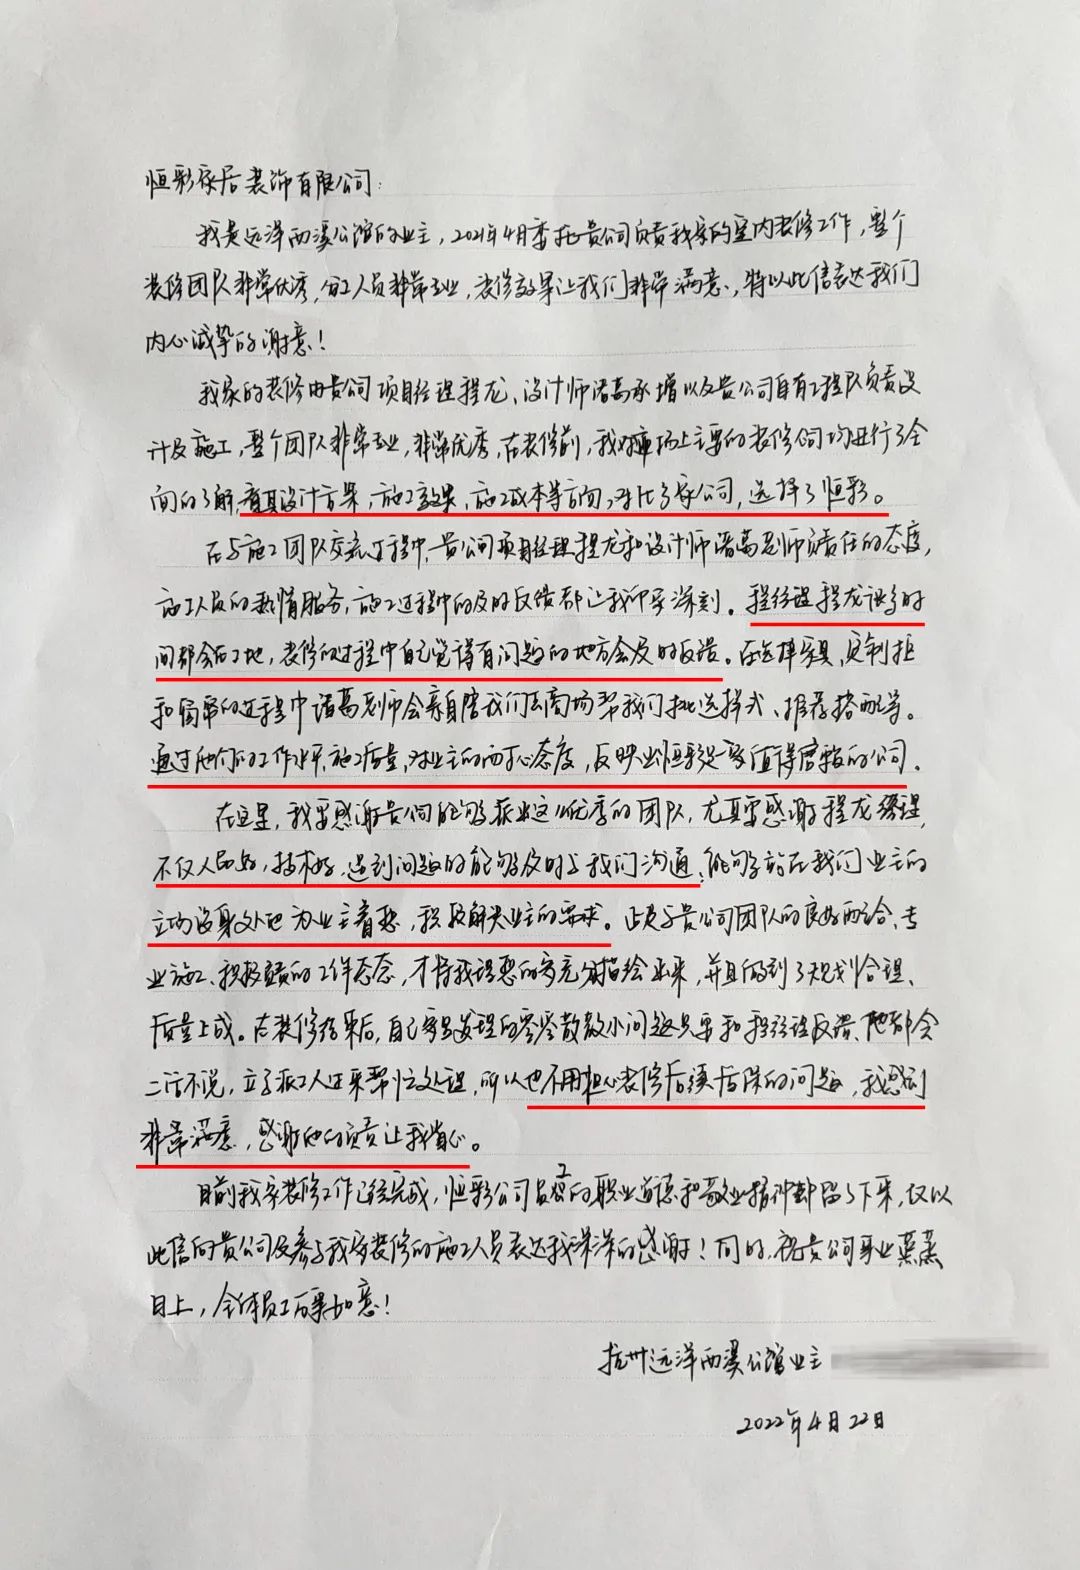 恒彩家居装饰有限公司:
我是远洋西溪公馆的业主，2021年4月委托贵公司负责我家的室内装修工作，整个
装修团队非常优秀，施工人员非常专业，装修效果让我们非常满意，特以此信表达我们
内心诚挚的谢意！
我家的装修由贵公司项目经理程龙、设计师诸葛承增以及贵公司自有工程队负责设
计及施工，整个团队非常专业，非常优秀，在装修前，我对市场上主要的装修公司均进行了全
面的了解，考其设计方案，施工效果，施工成本等方面，对比多家公司，选择了恒彩。
在与施工团队交流过程中，贵公司项目经理程龙和设计师诸葛老师负责任的态度，
施工人员的热情服务，施工过程中的及时反馈都让我印象深刻。程经理程龙很多时
间都会在工地，装修的过程中自己觉得有问题的地方会及时反馈。在选择家具，定制柜
和窗帘的过程中诸葛老师会亲自陪我们去商场帮我们挑选样式、推荐搭配等。
通过他们的工作水平，施工质量，对业主的耐心态度，反映出恒彩是一家值得信赖的公司。
在这里，我要感谢贵公司能够派出这么优秀的团队，尤其要感谢程龙经理，
不仅人品好，技术好，遇到问题时能够及时与我们沟通，能够站在我们业主的
立场设身处地为业主着想，积极解决业主的需求。正是与贵公司团队的良好配合、专
业施工、积极负责的工作态度，才将我理想的家充分描绘出来，并且做到了规划合理、
质量上成。在装修结束后，自己家里发现的零零散散小问题只要和程经理反馈、他都会
二话不说，立马派工人过来帮忙处理，所以也不用担心装修后续后保的问题，我感到
非常满意，感谢他的负责让我省心。
目前我家装修工作已经完成，恒彩公司员工的职业道德和敬业精神却留了下来，仅以
此信向贵公司及参与我家装修的施工人员表达我深深的感谢！同时，祝贵公司事业蒸蒸
日上，全体员工万事如意！
杭州远洋西溪公馆业主
2022年4月22日